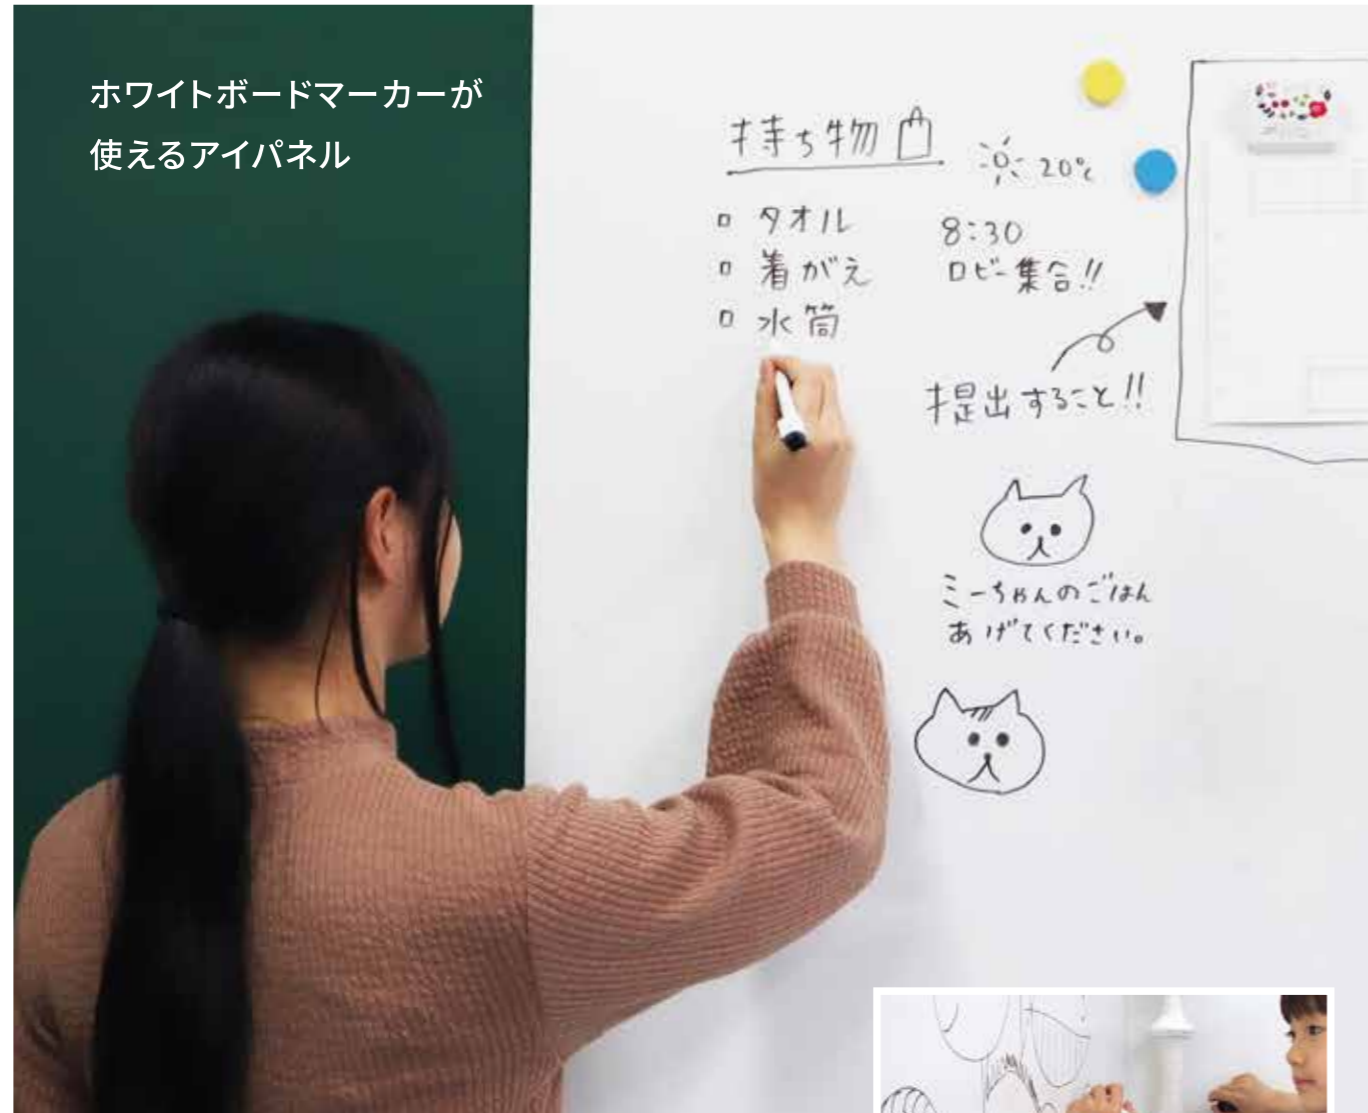 ホワイトボードマーカーが
使えるアイパネル
持ち物
20℃
タオル
着がえ
水筒
8:30
ロビー集合!!
提出すること!!
ミーちゃんのごはん
あげてください。